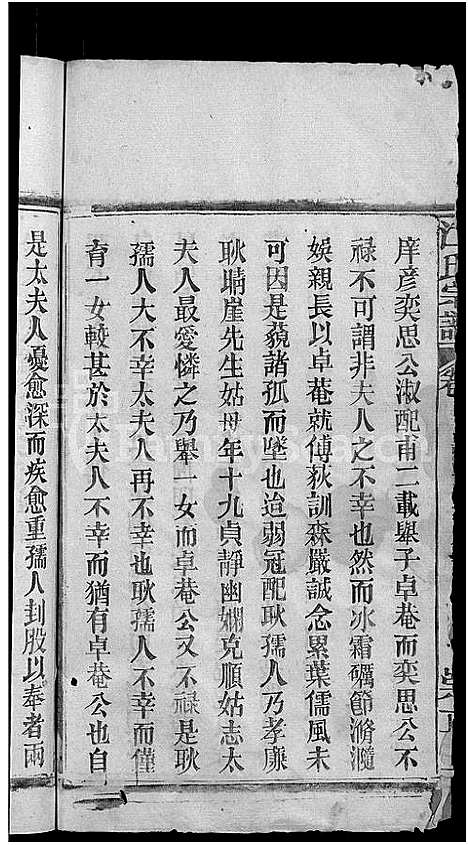 庠彥奕思公淑配甫二載舉子卓菴而奕思公不
祿不可謂非夫人之不幸也然而冰霜礪節滫瀡
娛親長以卓菴就傅荻訓森嚴誠念累葉儒風未
可因是藐諸孤而墜也迨弱冠配耿孺人乃孝廉
耿晴崖先生姑母年十九貞靜幽嫻克順姑志太
夫人最愛憐之乃舉一女而卓菴公又不祿是耿
孺人大不幸太夫人再不幸也耿孺人不幸而僅
育一女較甚於太夫人不幸而猶有卓菴公也自
是太夫人憂愈深而疾愈重孺人刲股以奉者兩